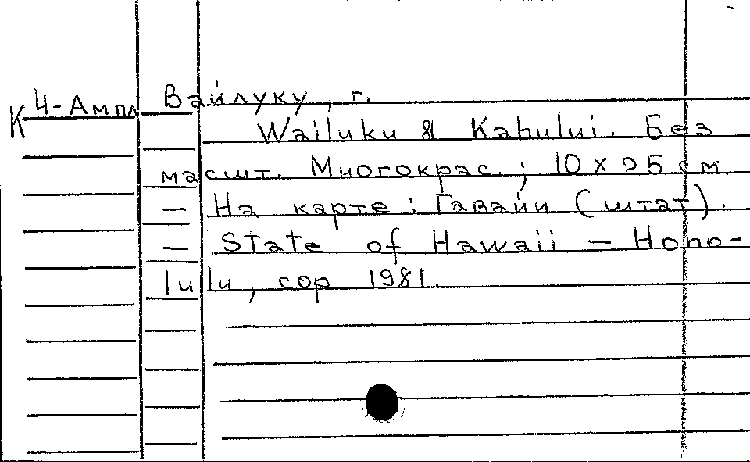 К 4-Ампл Вайлуку, г.
Wailuku & Kahului. Без
масшт. Многокрас.; 10 x 25 см
— На карте: Гавайи (штат).
— State of Hawaii — Hono-
lulu, cop 1981.